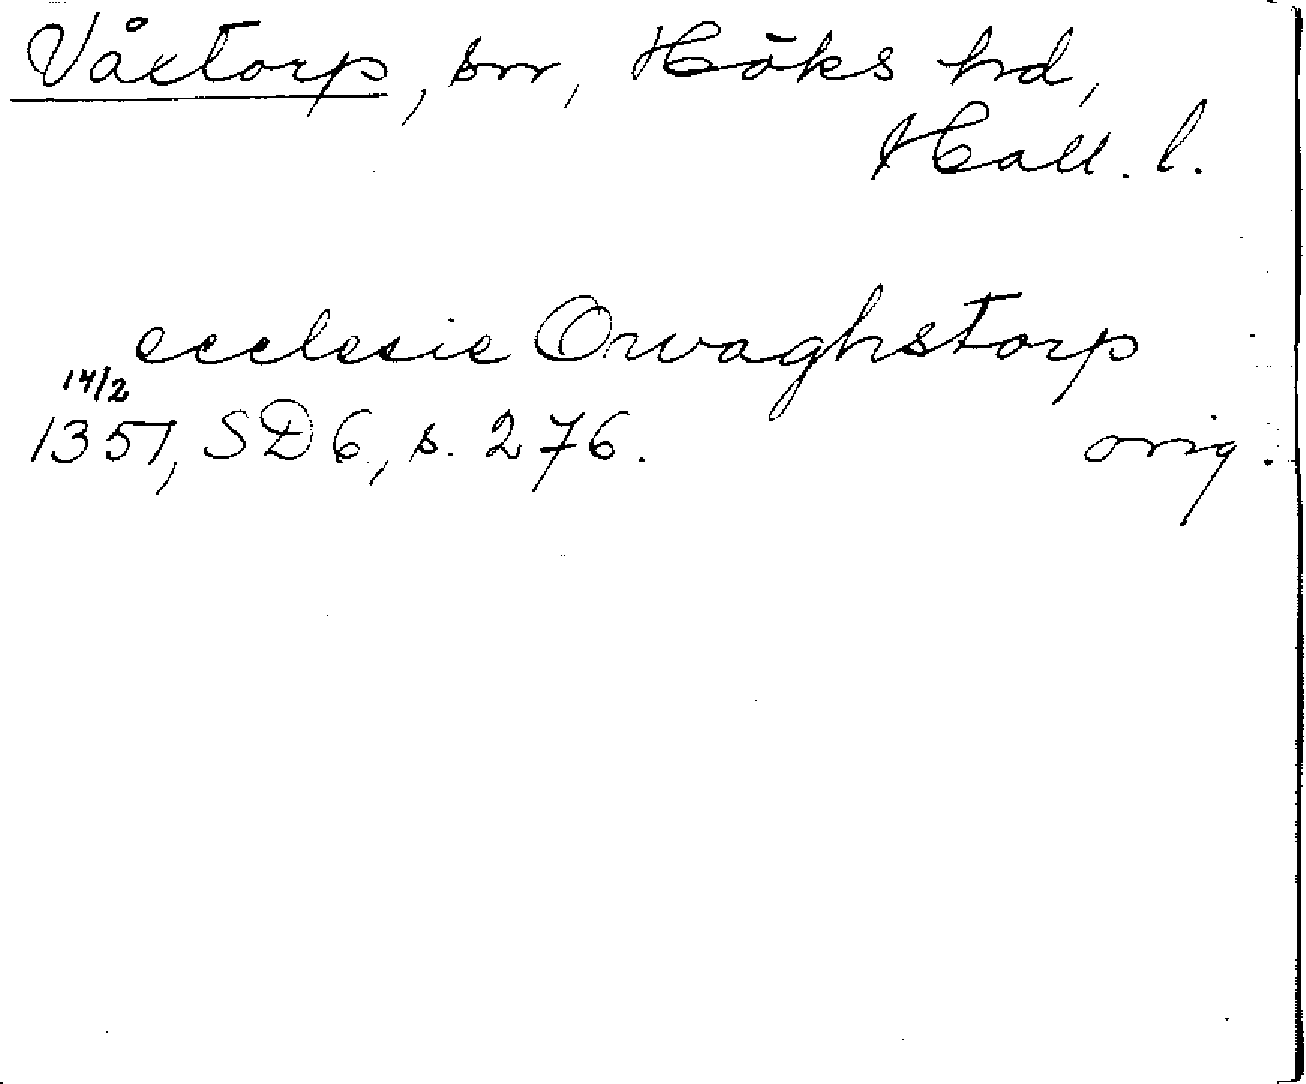 Våxtorp, sn, Höks hd,
Hall. l.
ecclesie Orwaghstorp
14/2
1351, SD 6, s. 276. orig.